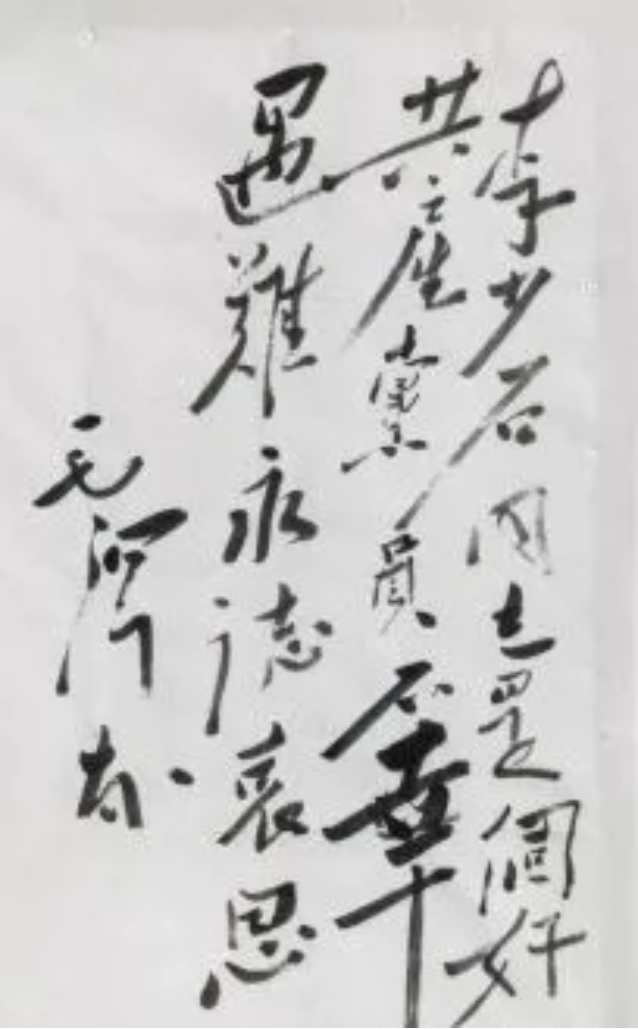 李少石同志是個好
共产黨員不幸
遇難永誌哀思
毛澤东